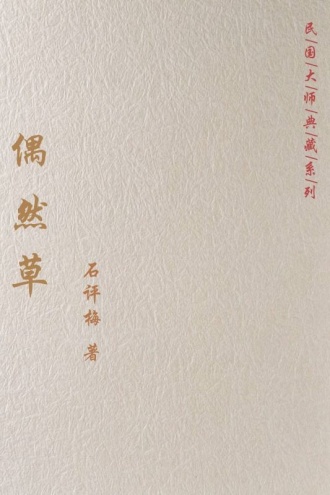 民|国|大|师|典|藏|系|列
偶然草
石评梅 著